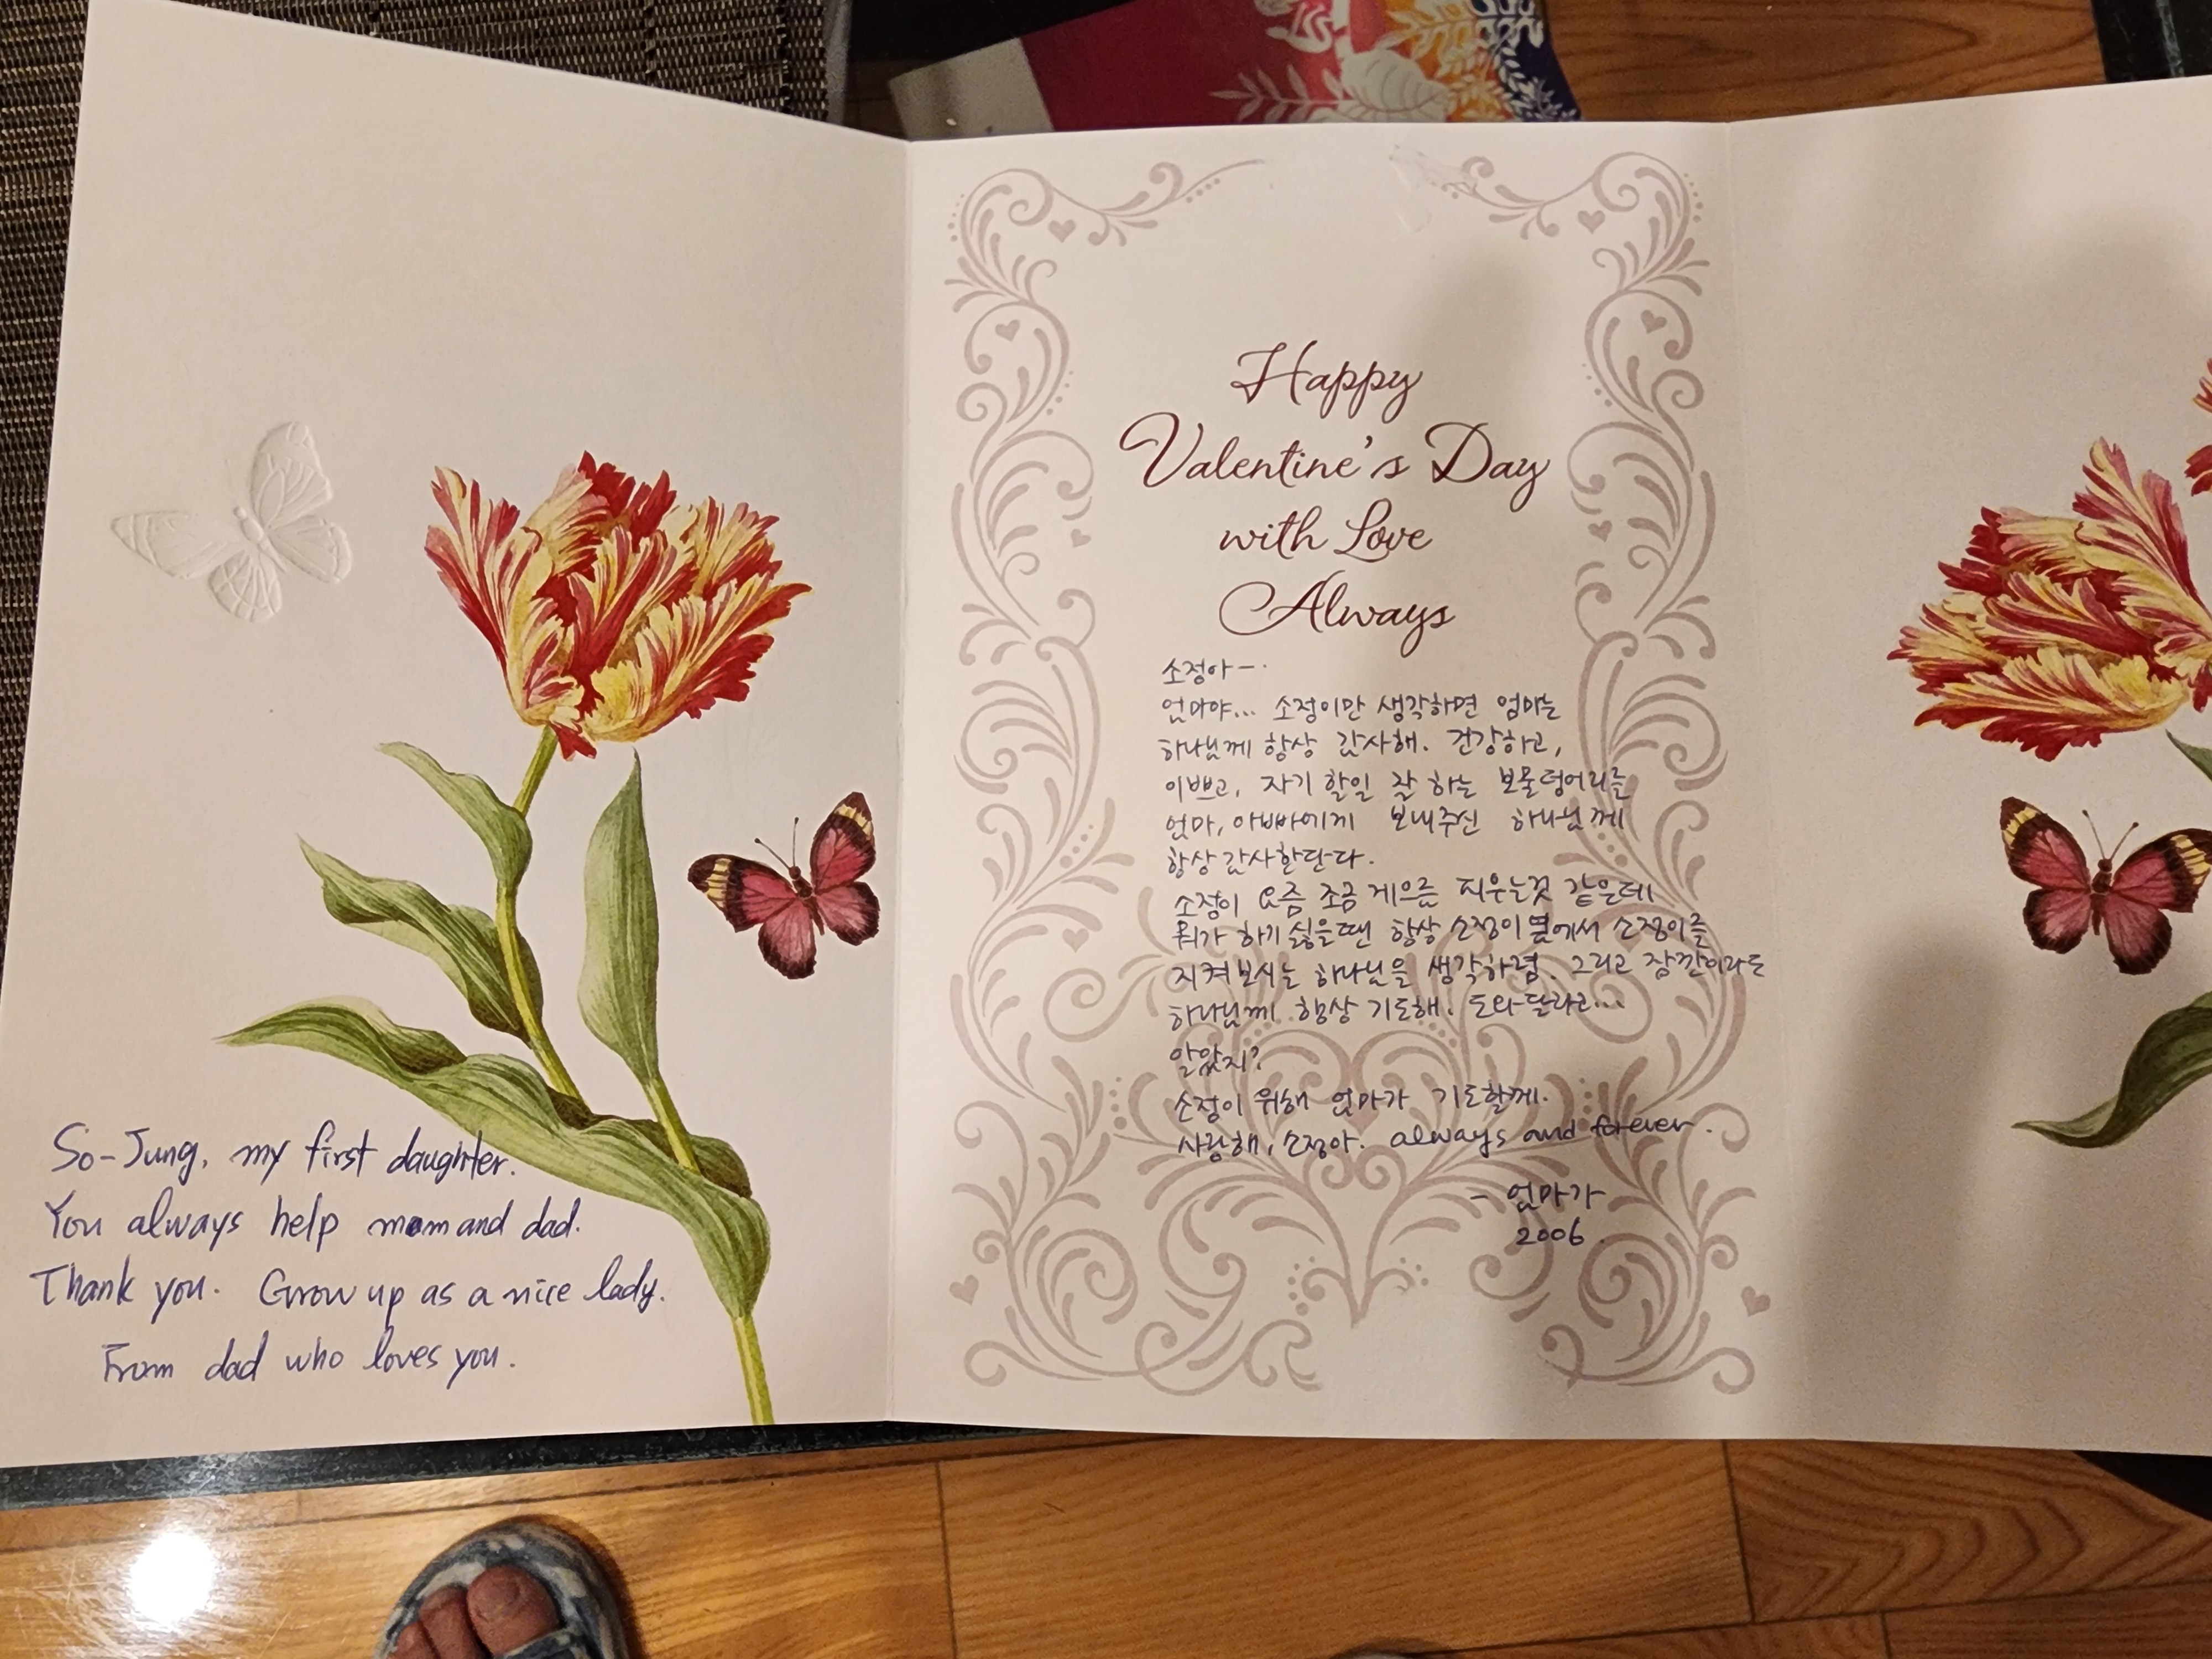 So-Jung, my first daughter.
You always help mom and dad.
Thank you. Grow up as a nice lady.
From dad who loves you.
Happy
Valentine's Day
with Love
Always
소정아-.
엄마야... 소정이만 생각하면 엄마는
하나님께 항상 감사해. 건강하고,
이쁘고, 자기 할일 잘 하는 보물덩어리를
엄마, 아빠에게 보내주신 하나님께
항상 감사한단다.
소정이 요즘 조금 게으름 피우는것 같은데
뭐가 하기 싫을땐 항상 소정이 옆에서 소정이를
지켜 보시는 하나님을 생각하렴. 그리고 잠깐이라도
하나님께 항상 기도해. 도와달라고...
알았지?
소정이 위해 엄마가 기도할께.
사랑해, 소정아. always and forever.
- 엄마가
2006.